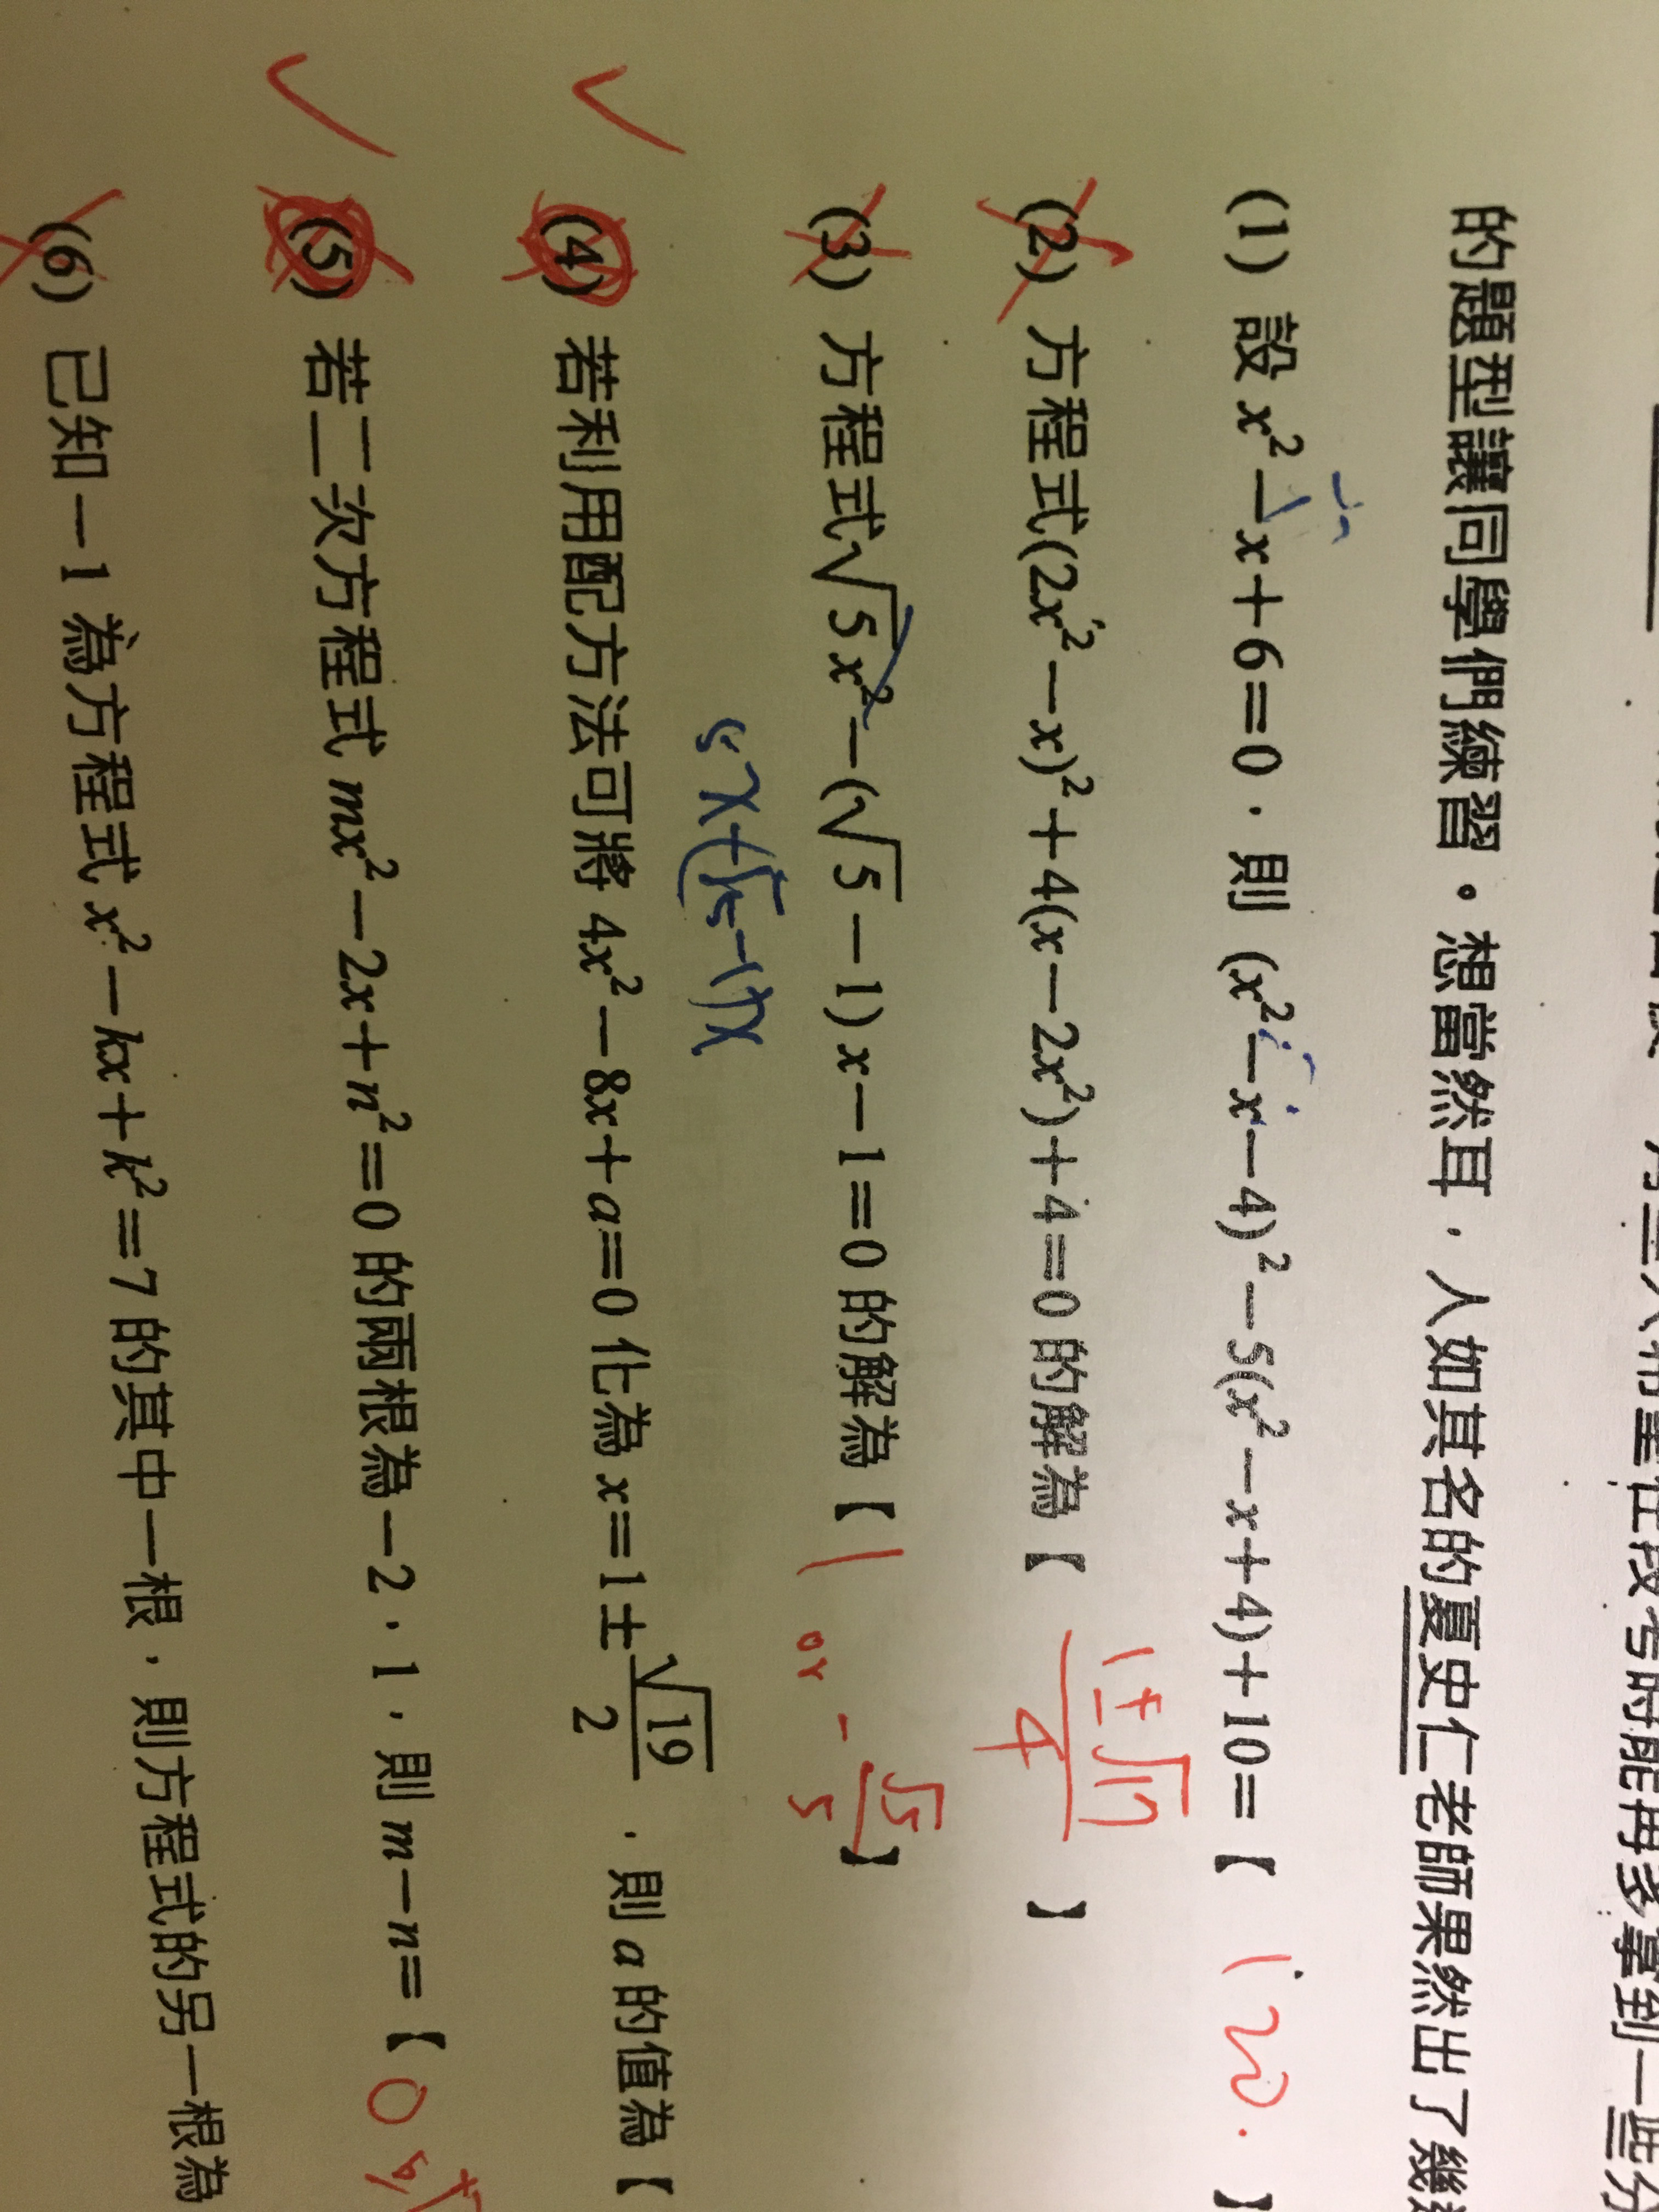 的題型讓同學們練習。想當然耳，人如其名的夏史仁老師果然出了幾
(1) 設 x²－x＋6＝0，則 (x²－x－4)²－5(x²－x＋4)＋10＝【 120. 】
(2) 方程式(2x²－x)²＋4(x－2x²)＋4＝0 的解為【 (1±√17)/4 】
(3) 方程式√5x²－(√5－1)x－1＝0 的解為【 1 or －√5/5 】
(4) 若利用配方法可將 4x²－8x＋a＝0 化為 x＝1±√19/2，則 a 的值為【
(5) 若二次方程式 mx²－2x＋n²＝0 的兩根為－2，1，則 m－n＝【 0 or
(6) 已知－1 為方程式 x²－kx＋k²＝7 的其中一根，則方程式的另一根為